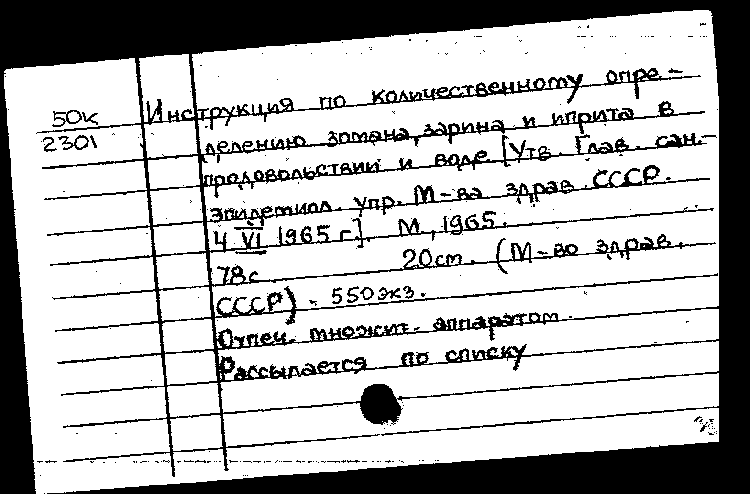 50к
2301
Инструкция по количественному опре-
делению зомана, зарина и иприта в
продовольствии и воде [Утв. Глав. сан.-
эпидемиол. упр. М-ва здрав. СССР.
4 VI 1965 г.]. М., 1965.
78с 20см. (М-во здрав.
СССР) - 550 экз.
Отпеч. множит. аппаратом.
Рассылается по списку